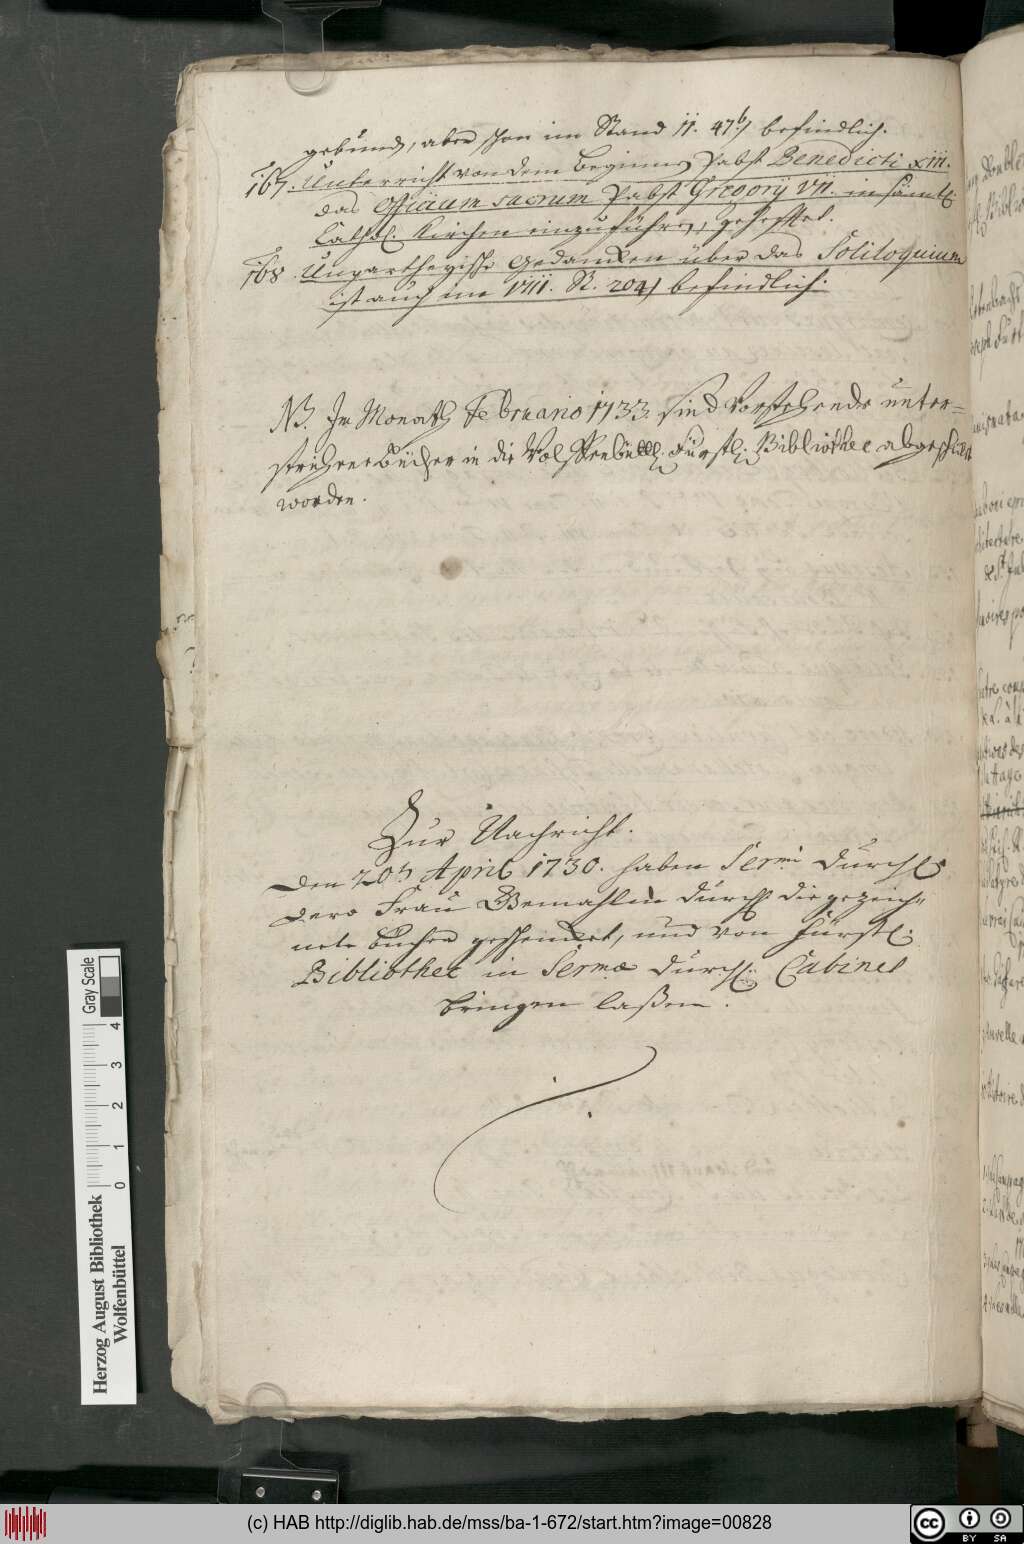 gebunden, aber schon im Stand II. 47b) befindlich.
167. Unterricht von dem Beginnen Pabst Benedicti XIII.
das Officium sacrum Pabst Gregorij VII. in sämtl.
Cathol. Kirchen einzuführen, gehefftet.
168. Unpartheyische Gedancken über das Soliloquium
ist auch im VIII. St. 204) befindlich.
NB. Im Monath Februario 1733 sind vorstehende unter=
strichene Bücher in die Wolffenbüttl. Fürstl. Bibliothec
worden.
Zur Nachricht.
Den 20ten April 1730. haben Sermi Durchl.
Dero Frau Gemahlin Durchl. die gezeich=
nete Bücher geschencket, und von Fürstl.
Bibliothec in Sermae Durchl. Cabinet
bringen laßen.
Herzog August Bibliothek
Wolfenbüttel
0 1 2 3 4
Gray Scale
(c) HAB http://diglib.hab.de/mss/ba-1-672/start.htm?image=00828
cc BY SA